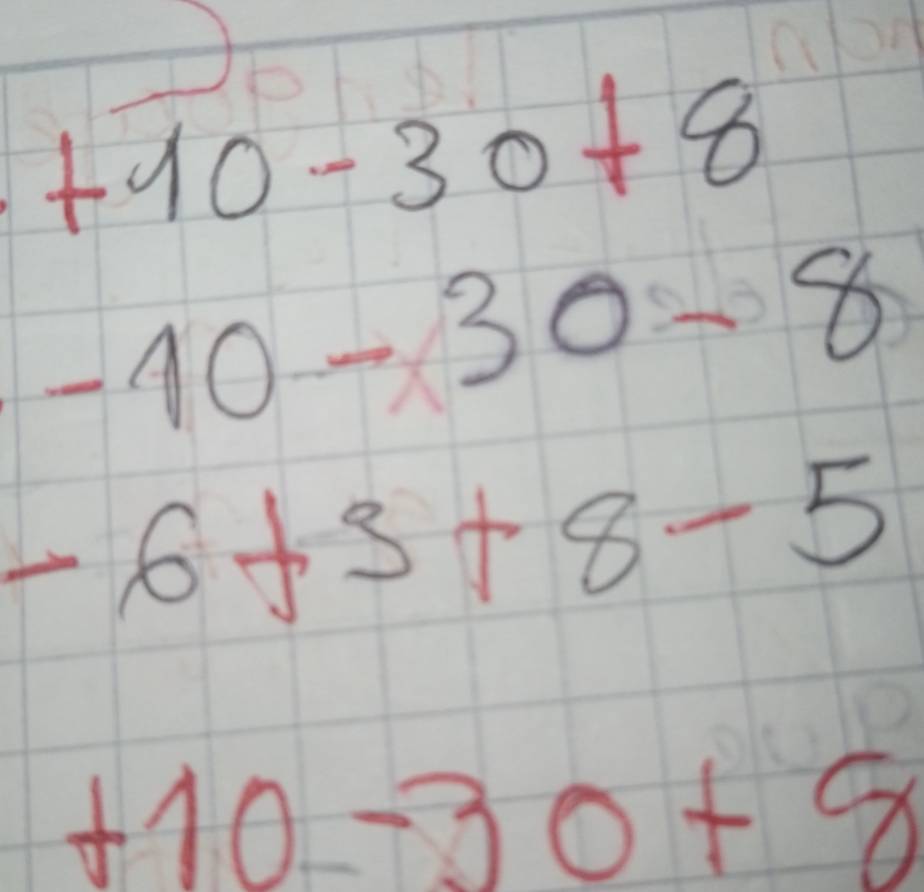 +10-30+8
-10-30-8
-6+3+8-5
+10-30+8